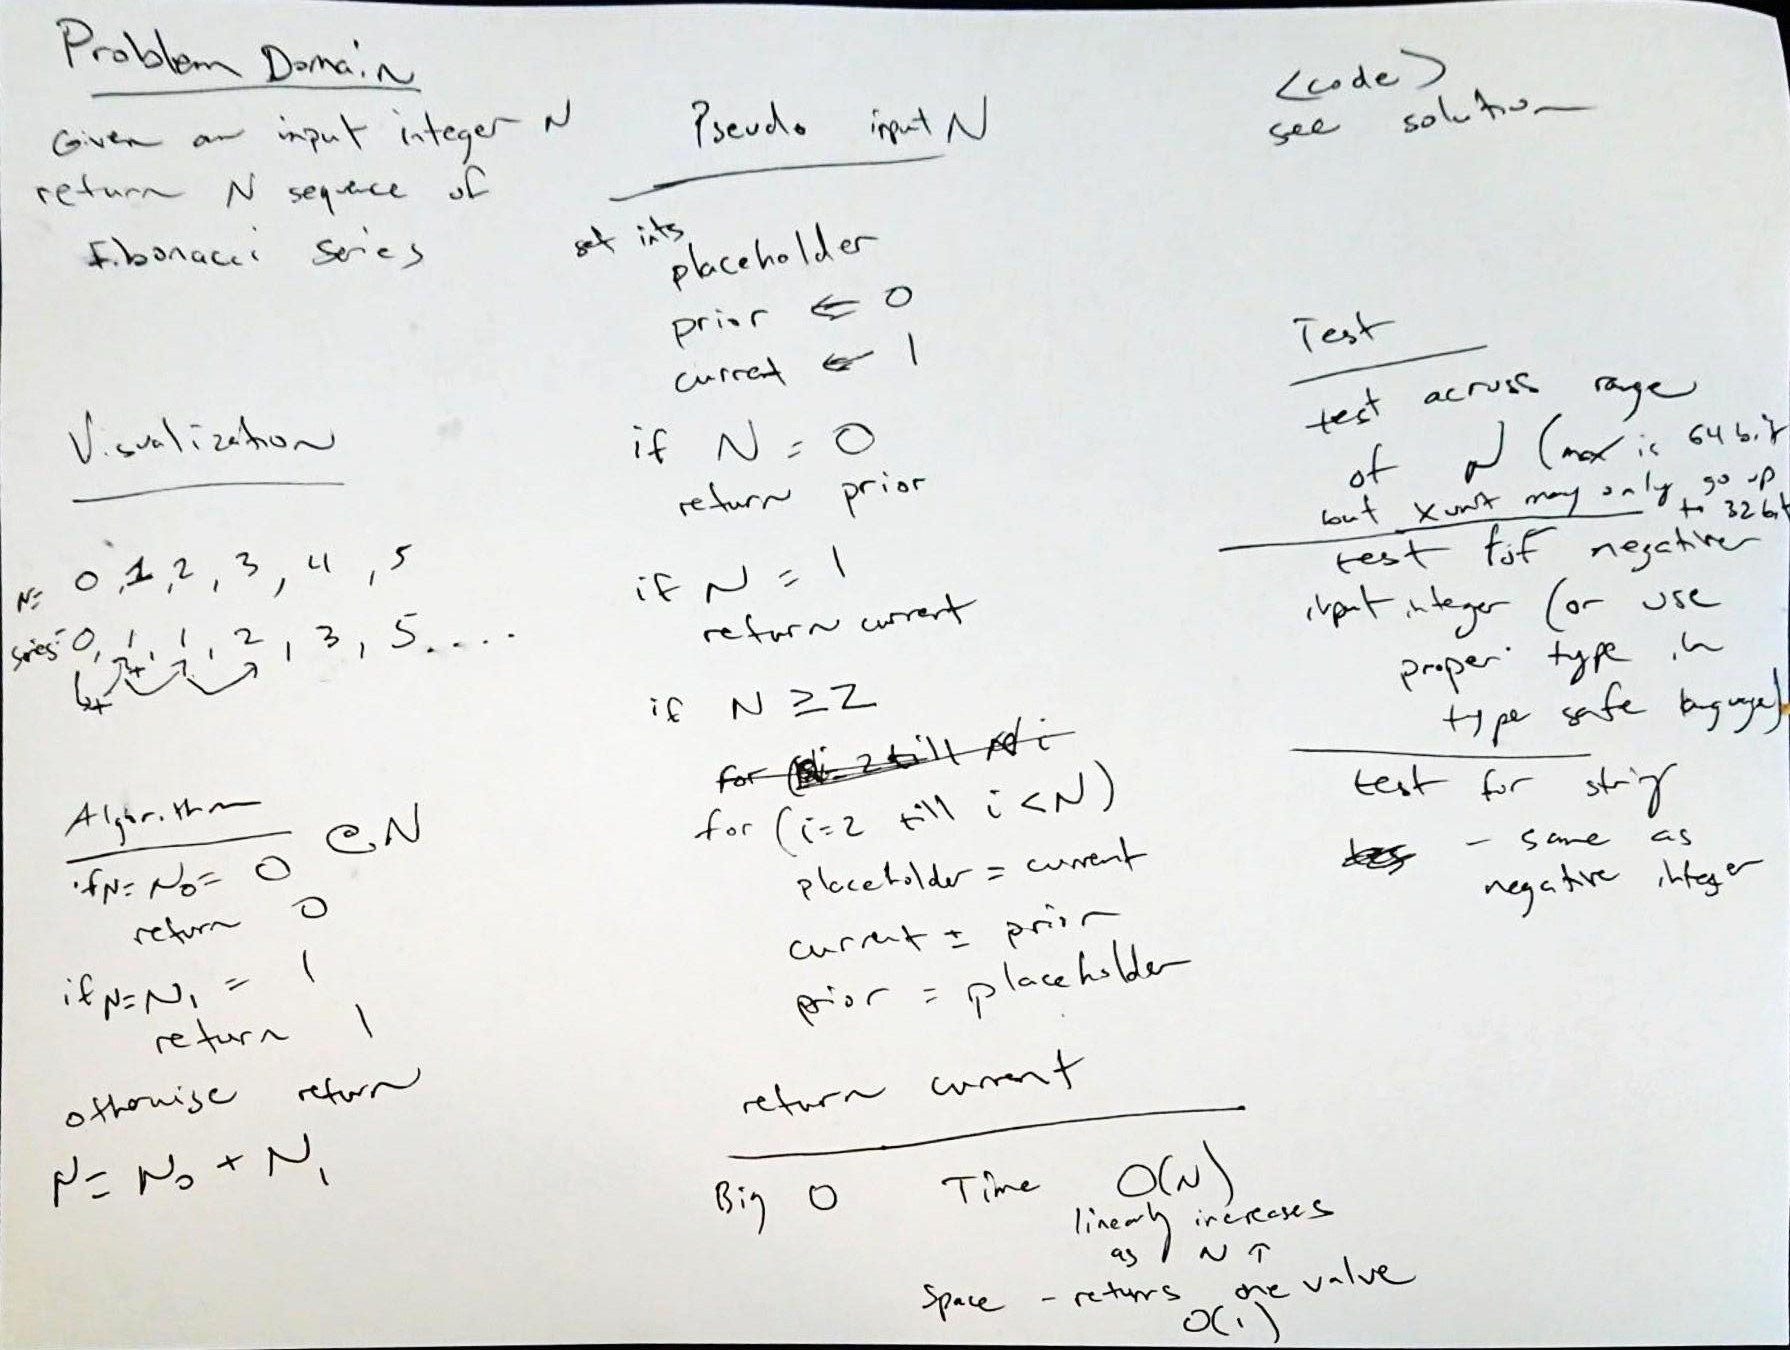 Problem Domain
Given an input integer N
return N sequence of
Fibonacci Series
Visualization
N= 0, 1, 2, 3, 4, 5
series= 0, 1, 1, 2, 3, 5....
+ +
Algorithm
@N
if N= N₀= 0
return 0
if N=N₁ = 1
return 1
otherwise return
N= N₀ + N₁
Pseudo input N
set ints
placeholder
prior ⇐ 0
current ← 1
if N = 0
return prior
if N = 1
return current
if N ≥ 2
for (i=2 till i
for (i=2 till i < N)
placeholder = current
current ± prior
prior = placeholder
return current
Big O Time O(N)
linearly increases
as N ↑
Space - returns one value
O(1)
<code>
see solution
Test
test across range
of N (max is 64 bit
but xunit may only go up
to 32 bit
test for negative
input integer (or use
proper type in
type safe language)
test for string
- same as
negative integer